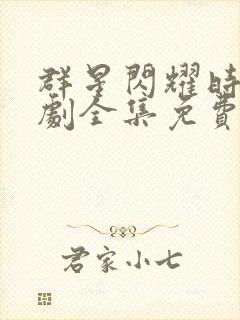 群星閃耀時
劇全集免費
君家小七